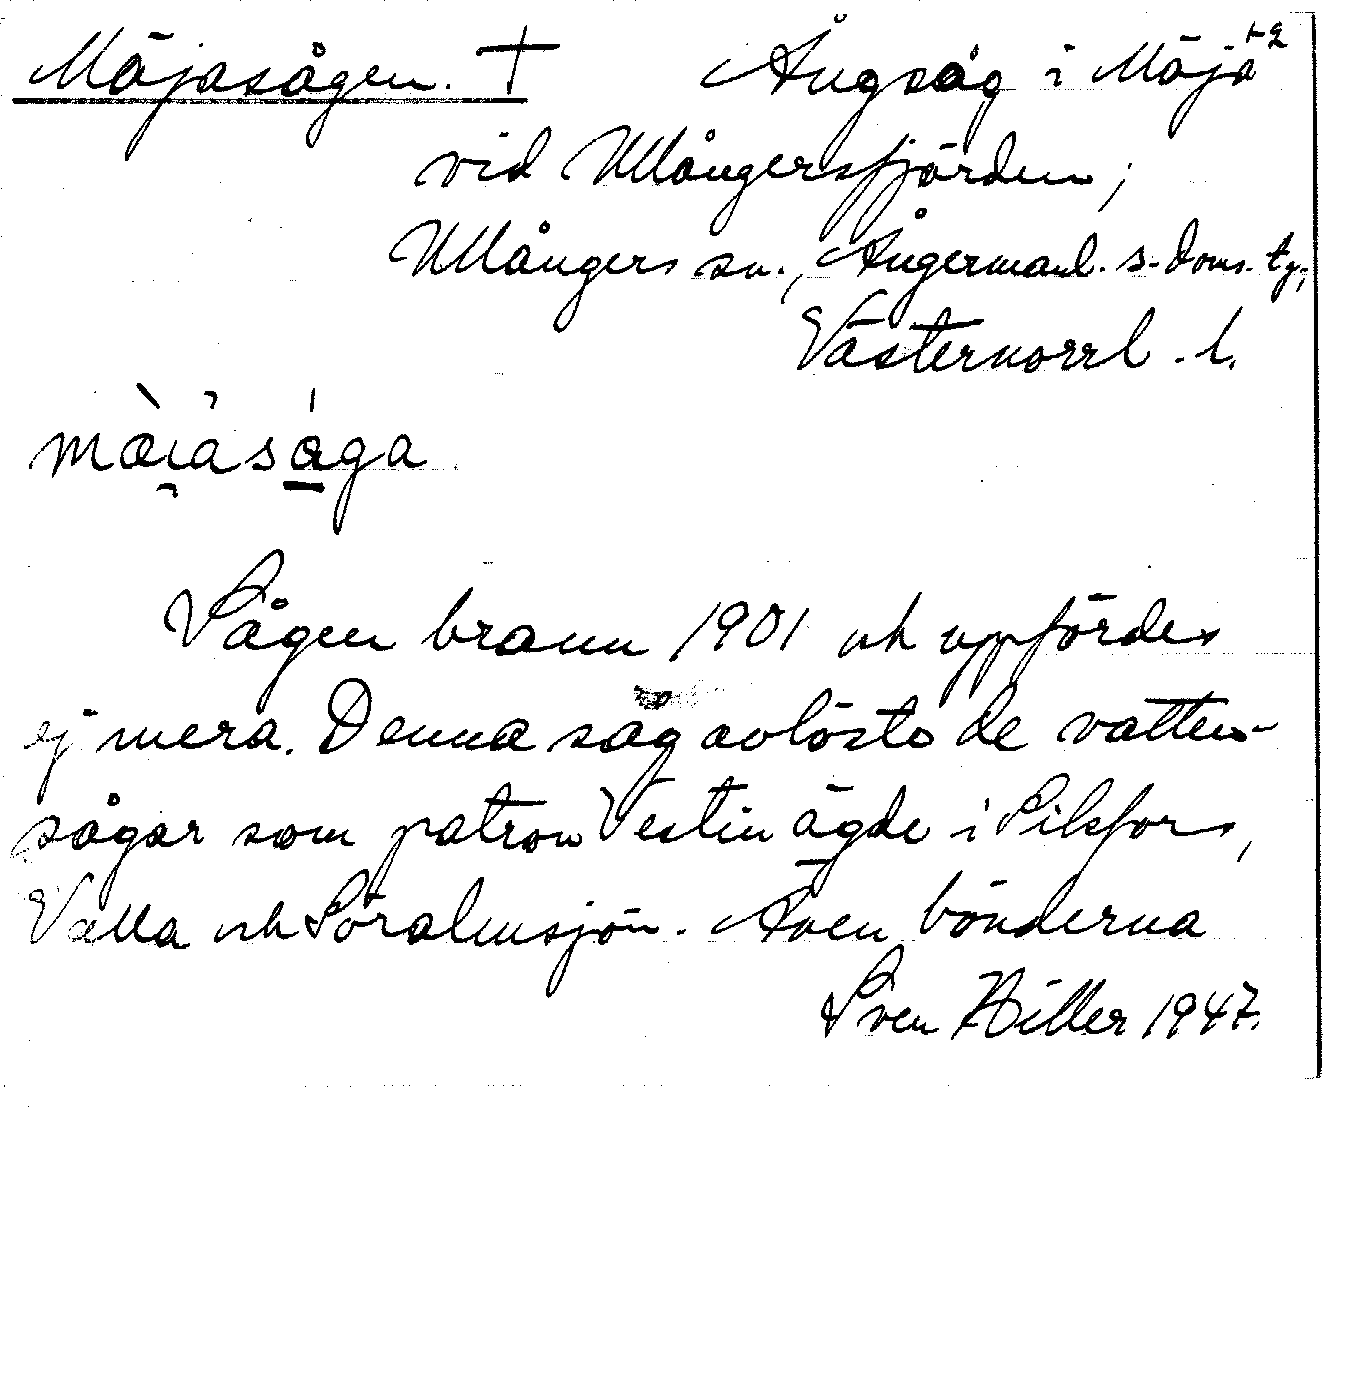 Mäjasågen. † Ångsåg i Mäja 1-2
vid Ullångersfjärden;
Ullångers sn., Ångermanl. s. doms. tg.,
Västernorrl. l.
mäjasåga
Sågen brann 1901 och uppfördes
ej mera. Denna såg avlöste de vatten-
sågar som patron Vestin ägde i Silsfors,
Valla och Söralmsjön. Även bönderna
Sven Hiller 1947.